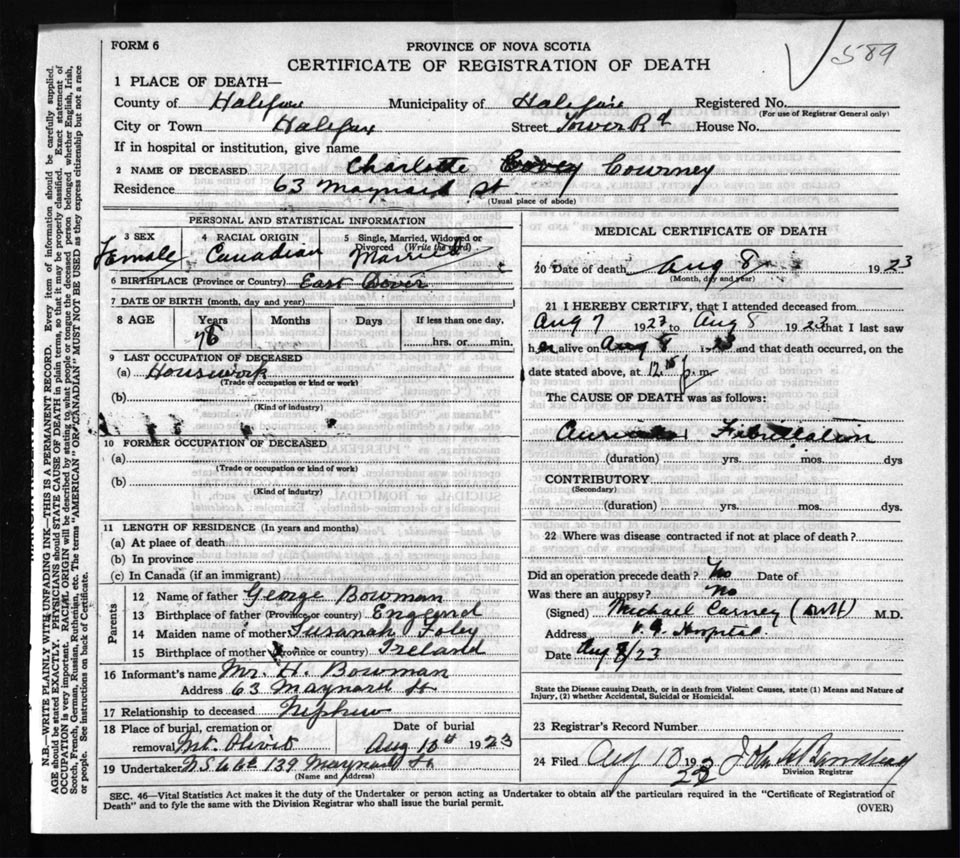 589
FORM 6
PROVINCE OF NOVA SCOTIA
CERTIFICATE OF REGISTRATION OF DEATH
1 PLACE OF DEATH—
County of Halifax Municipality of Halifax Registered No.
(For use of Registrar General only)
City or Town Halifax Street Tower Rd House No.
If in hospital or institution, give name
2 NAME OF DECEASED Charlotte Courney
Residence 63 Maynard St
(Usual place of abode)
PERSONAL AND STATISTICAL INFORMATION
3 SEX Female
4 RACIAL ORIGIN Canadian
5 Single, Married, Widowed or Divorced (Write the word) Married
6 BIRTHPLACE (Province or Country) East Dover
7 DATE OF BIRTH (month, day and year)
8 AGE Years Months Days If less than one day,
78 hrs. or min.
9 LAST OCCUPATION OF DECEASED
(a) Housework
(Trade or occupation or kind or work)
(b)
(Kind of industry)
10 FORMER OCCUPATION OF DECEASED
(a)
(Trade or occupation or kind of work)
(b)
(Kind of industry)
11 LENGTH OF RESIDENCE (In years and months)
(a) At place of death
(b) In province
(c) In Canada (if an immigrant)
Parents
12 Name of father George Bowman
13 Birthplace of father (Province or country) England
14 Maiden name of mother Susanah Foley
15 Birthplace of mother (Province or country) Ireland
16 Informant's name Mr. H. Bowman
Address 63 Maynard St
17 Relationship to deceased Nephew
18 Place of burial, cremation or Date of burial
removal Mt. Olivet Aug 10th 1923
19 Undertaker 139 Maynard St
(Name and Address)
MEDICAL CERTIFICATE OF DEATH
20 Date of death Aug 8 1923
(Month, day and year)
21 I HEREBY CERTIFY, that I attended deceased from
Aug 7 1923 to Aug 8 1923 that I last saw
her alive on Aug 8 1923 and that death occurred, on the
date stated above, at 12.15 p.m.
The CAUSE OF DEATH was as follows:
Fibrillation
(duration) yrs. mos. dys
CONTRIBUTORY
(Secondary)
(duration) yrs. mos. dys.
22 Where was disease contracted if not at place of death?
Did an operation precede death? No Date of
Was there an autopsy? No
(Signed) Michael Carney M.D.
Address V.G. Hospital
Date Aug 8/23
State the Disease causing Death, or in death from Violent Causes, state (1) Means and Nature of
Injury, (2) whether Accidental, Suicidal or Homicidal.
23 Registrar's Record Number
24 Filed Aug 10 192
Division Registrar
SEC. 46—Vital Statistics Act makes it the duty of the Undertaker or person acting as Undertaker to obtain all the particulars required in the "Certificate of Registration of
Death" and to fyle the same with the Division Registrar who shall issue the burial permit.
(OVER)
N.B.—WRITE PLAINLY WITH UNFADING INK—THIS IS A PERMANENT RECORD. Every item of information should be carefully supplied.
AGE should be stated EXACTLY. PHYSICIANS should STATE CAUSE OF DEATH in plain terms, so that it may be properly classified. Exact statement of
OCCUPATION is very important. RACIAL ORIGIN will be described by stating to what people or tongue the deceased person belonged whether English, Irish,
Scotch, French, German, Russian, Ruthenian, etc. The terms "AMERICAN" OR "CANADIAN" MUST NOT BE USED as they express citizenship but not a race
or people. See instructions on back of Certificate.